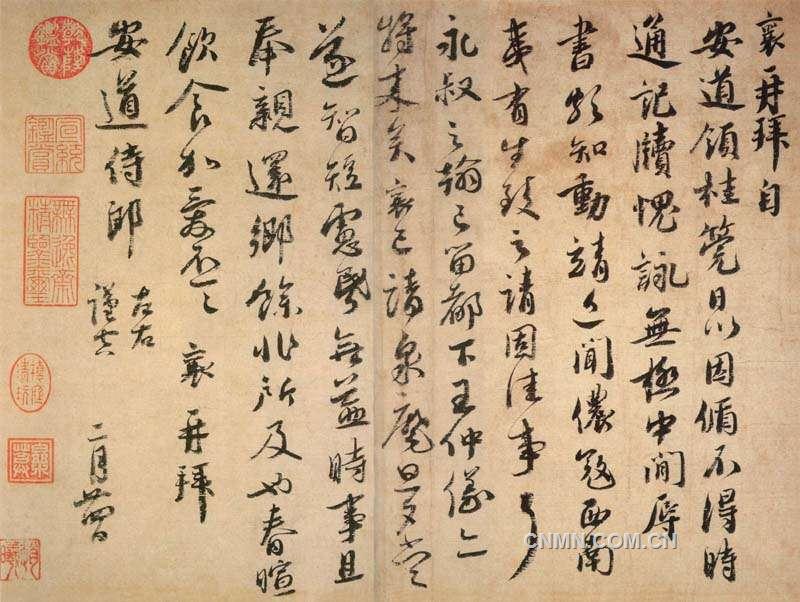 襄再拜自
安道領桂筦日以因循不得時
通記牘愧詠無極中間辱
書頗知動靖近聞儂寇西南
夷有生致之請固佳事
永叔之翰已留都下王仲儀亦
將來矣襄已請泉麾旦夕當
遂智短慮昏無益時事且
奉親還鄉餘非所及也春暄
飲食加愛不一一 襄再拜
安道侍郎 左右
謹空
二月廿四日
CNMN.COM.CN